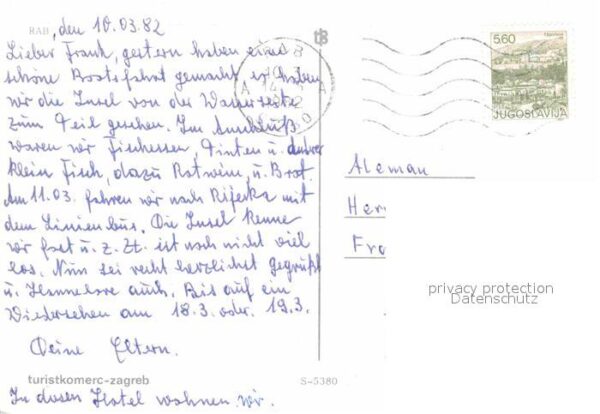 RAB, den 10.03.82
Lieber Frank, gestern haben eine
schöne Bootsfahrt gemacht so haben
wir die Insel von der Wasserseite
zum Teil gesehen. Im Anschluß
waren wir Fischessen, Tinten u. anderer
klein Fisch, dazu Rotwein, u. Brot.
Am 11.03. fahren wir nach Rijeka mit
dem Linienbus. Die Insel kenne
wir fast u. z. Zt. ist noch nicht viel
los. Nun sei recht herzlichst gegrüßt
u. Hannelore auch. Bis auf ein
Wiedersehen am 18.3. oder 19.3.
Deine Eltern.
turistkomerc-zagreb
S-5380
In diesen Hotel wohnen wir.
tB
5,60
JUGOSLAVIJA
Aleman
Her
Fra
privacy protection
Datenschutz